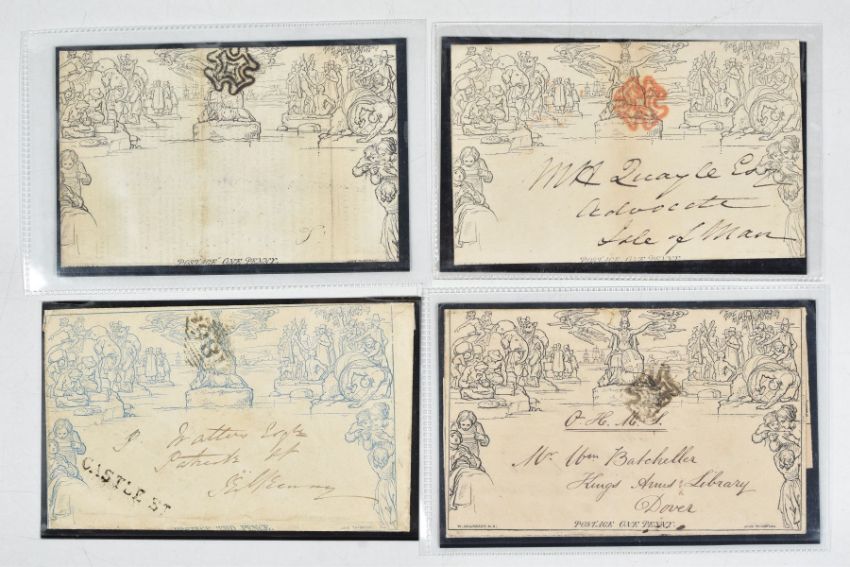 POSTAGE ONE PENNY.
Quayle Esq
Advocate
Isle of Man
POSTAGE ONE PENNY.
Watters Esqre
Patrick St
Kilkenny
CASTLE ST
POSTAGE TWO PENCE.
O.H.M.S.
Mr. Wm Batcheller
Kings Arms Library
Dover
POSTAGE ONE PENNY.